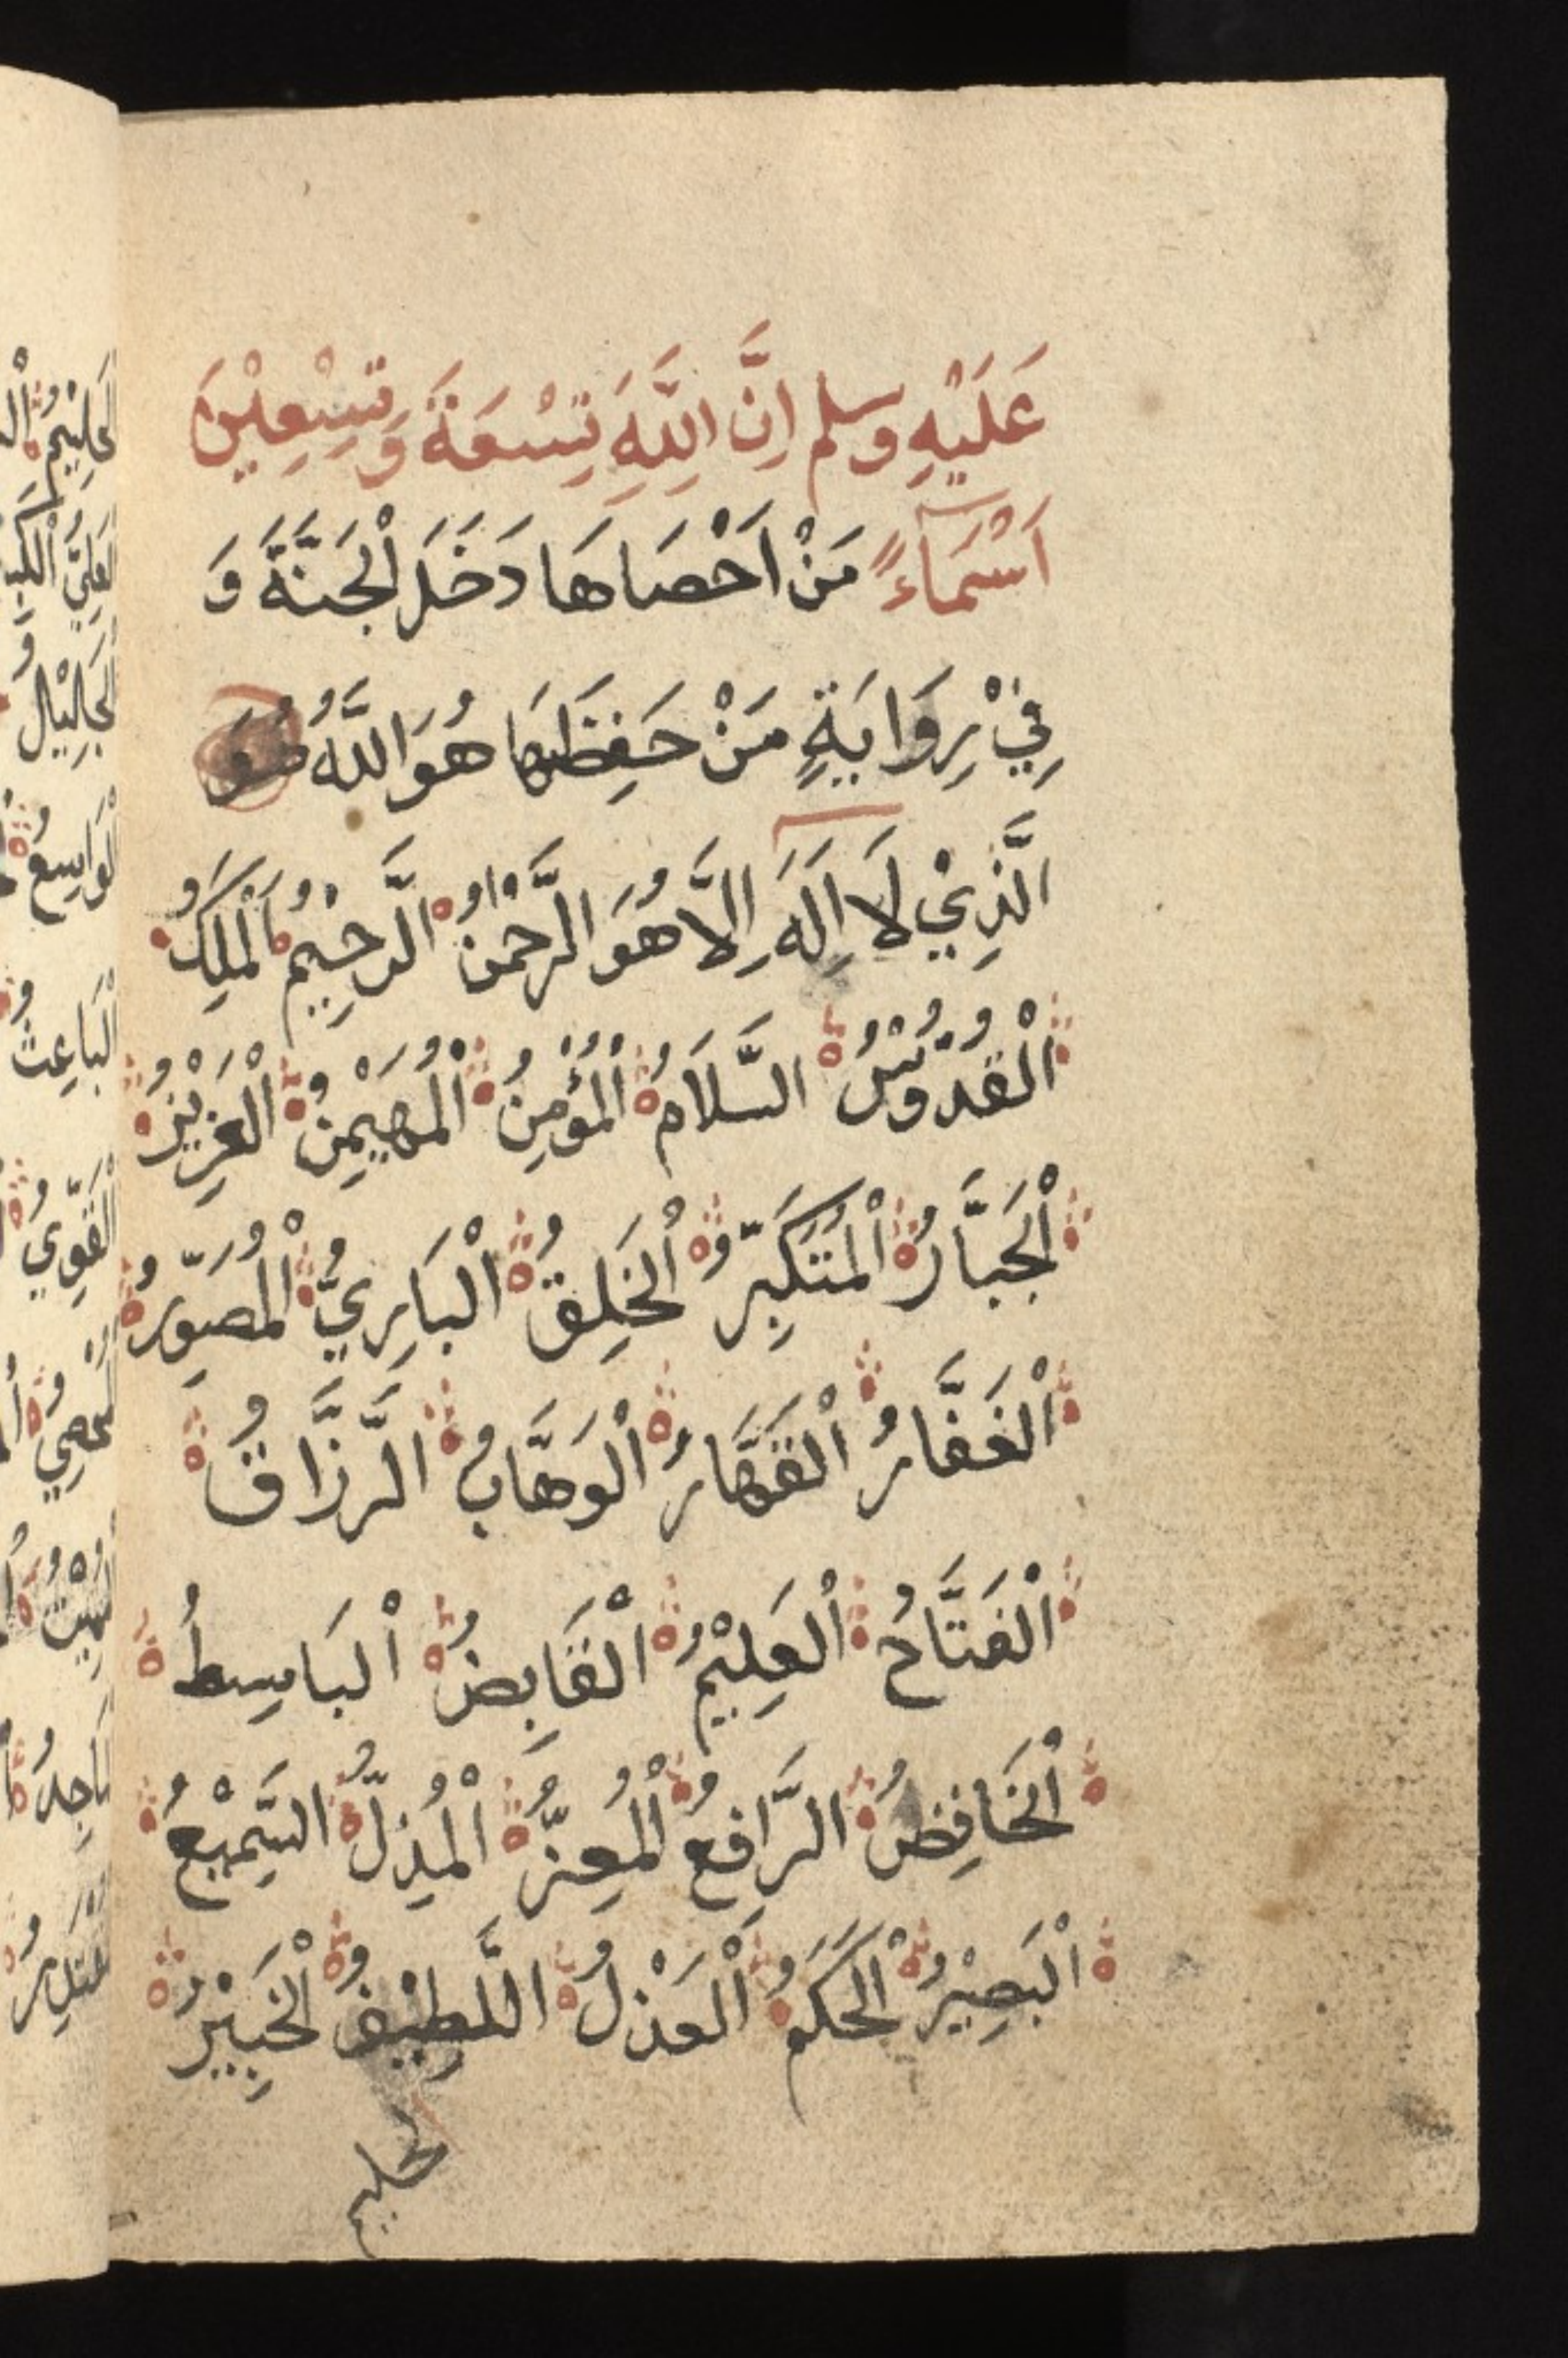 عَلَيْهِ وسلم اِنَّ اللَّهِ تِسْعَةَ وَتِسِْعِيْنَ
اَسْمَاءً مَنْ اَحْصَاهَا دَخَلَ الْجَنَّةَ وَ
فِيْ رِوَايَةٍ مَنْ حَفِظَهَا هُوَ اللَّهُ هُوَ
الَّذِيْ لَا اِلَهَ اِلَّا هُوَ الرَّحْمنُ الرَّحِيْمُ اَلْمَلِكُ
اَلْقُدُّوْسُ السَّلَامُ اَلْمُؤْمِنُ اَلْمُهَيْمِنُ اَلْعَزِيْزُ
اَلْجَبَّارُ اَلْمُتَكَبِّرُ اَلْخَلِقُ اَلْبَارِيُّ اَلْمُصَوِّرُ
اَلْغَفَّارُ اَلْقَهَّارُ اَلْوَهَّابُ الرَّزَّاقُ
اَلْفَتَّاحُ اَلْعَلِيْمُ اَلْقَابِضُ اَلْبَاسِطُ
اَلْخَافِضُ الرَّافِعُ اَلْمُعِزُّ اَلْمُذِلُّ السَّمِيْعُ
اَلْبَصِيْرُ اَلْحَكَمُ اَلْعَدْلُ اللَّطِيْفُ اَلْخَبِيْرُ
لحليم
الْحَلِيْمُ
الْعَلِيُّ
الْجَلِيْلُ
الْوَاسِعُ
الْبَاعِثُ
الْقَوِيُّ